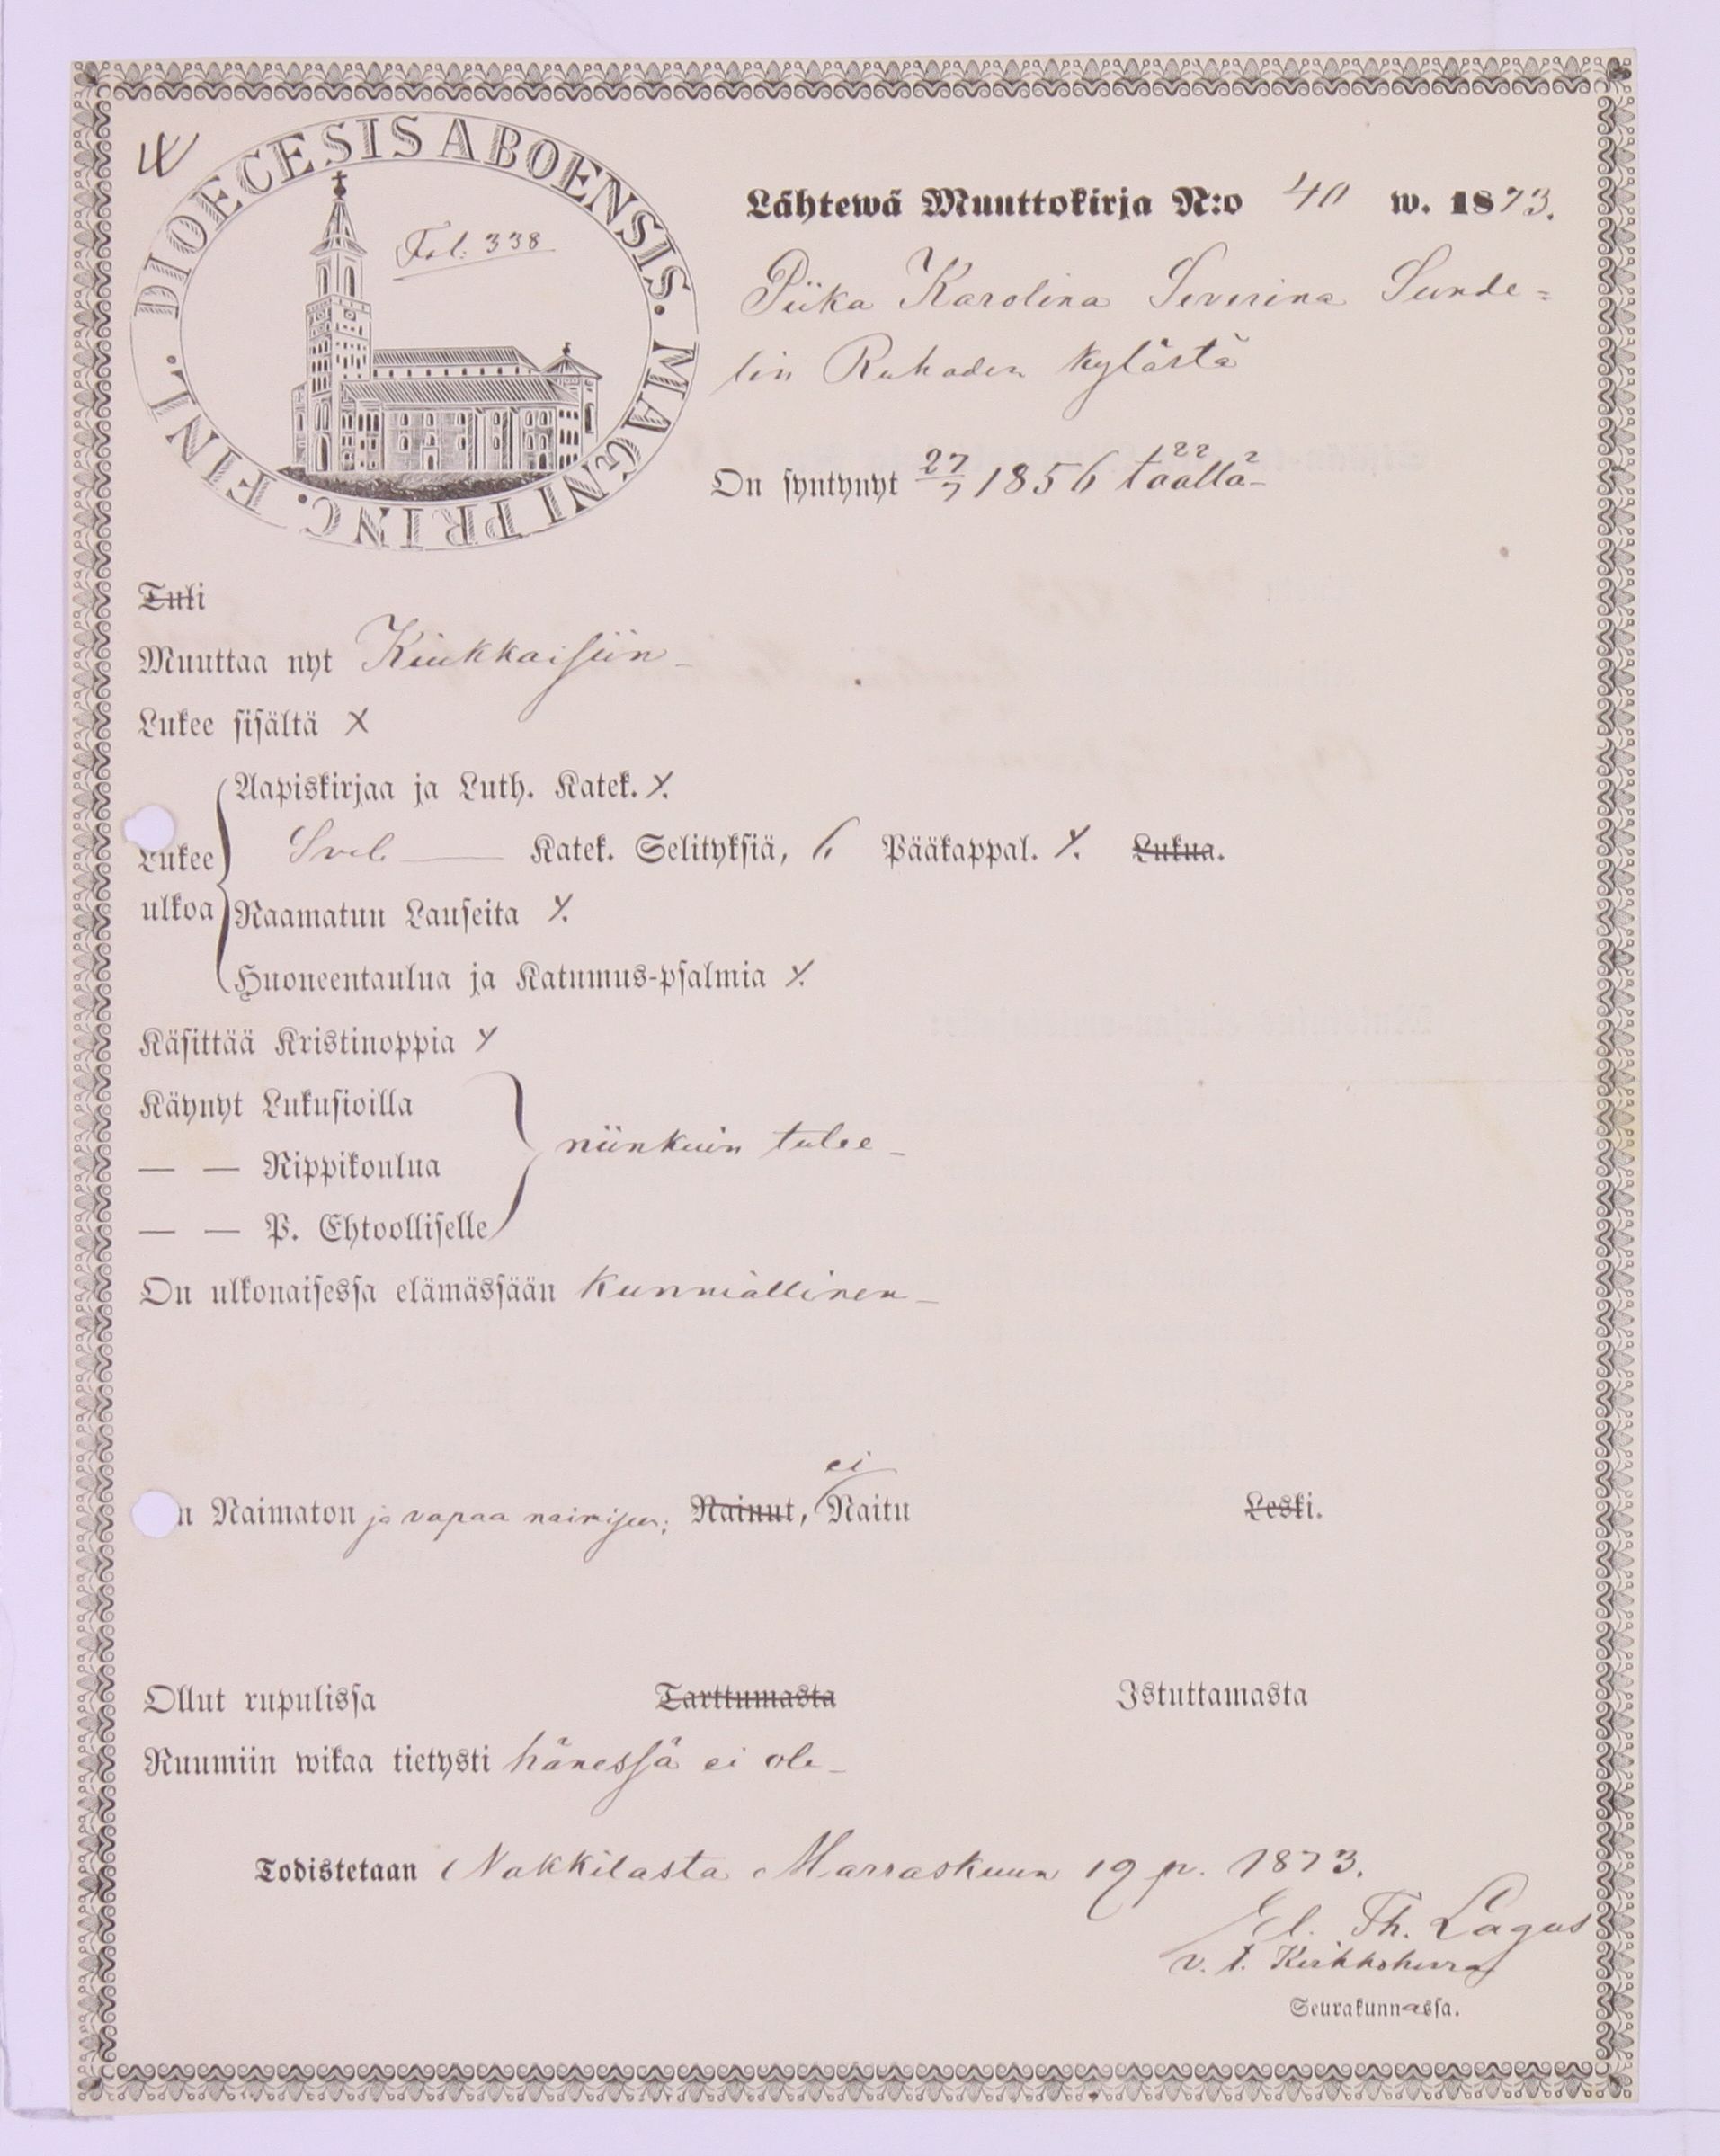 DIOECESIS ABOENSIS. MAGNI PRINC. FINL.
Fol. 338
Lähtewä Muuttokirja N:o 40 w. 1873.
Piika Karolina Severina Sunde=
lin Ruhaden kylästä
On syntynyt 27/7 1856 täällä
Tuli
Muuttaa nyt Kiukkaisiin
Lukee sisältä x
Lukee ulkoa
Aapiskirjaa ja Luth. Katek. x.
Sveb. — Katek. Selityksiä, 6 Pääkappal. x. Lukua.
Raamatun Lauseita x.
Huoneentaulua ja Katumus-psalmia x.
Käsittää Kristinoppia x
Käynyt Lukusioilla
— — Rippikoulua niinkuin tulee
— — P. Ehtoolliselle
On ulkonaisessa elämässään kunniallinen
ei
n Naimaton ja vapaa naimiseen; Nainut, Naitu Leski.
Ollut rupulissa Tarttumasta Istuttamasta
Ruumiin wikaa tietysti hänessä ei ole
Todistetaan Nakkilasta Marraskuun 19 p. 1873.
El. Th. Lagus
v. t. Kirkkoherra
Seurakunnassa.